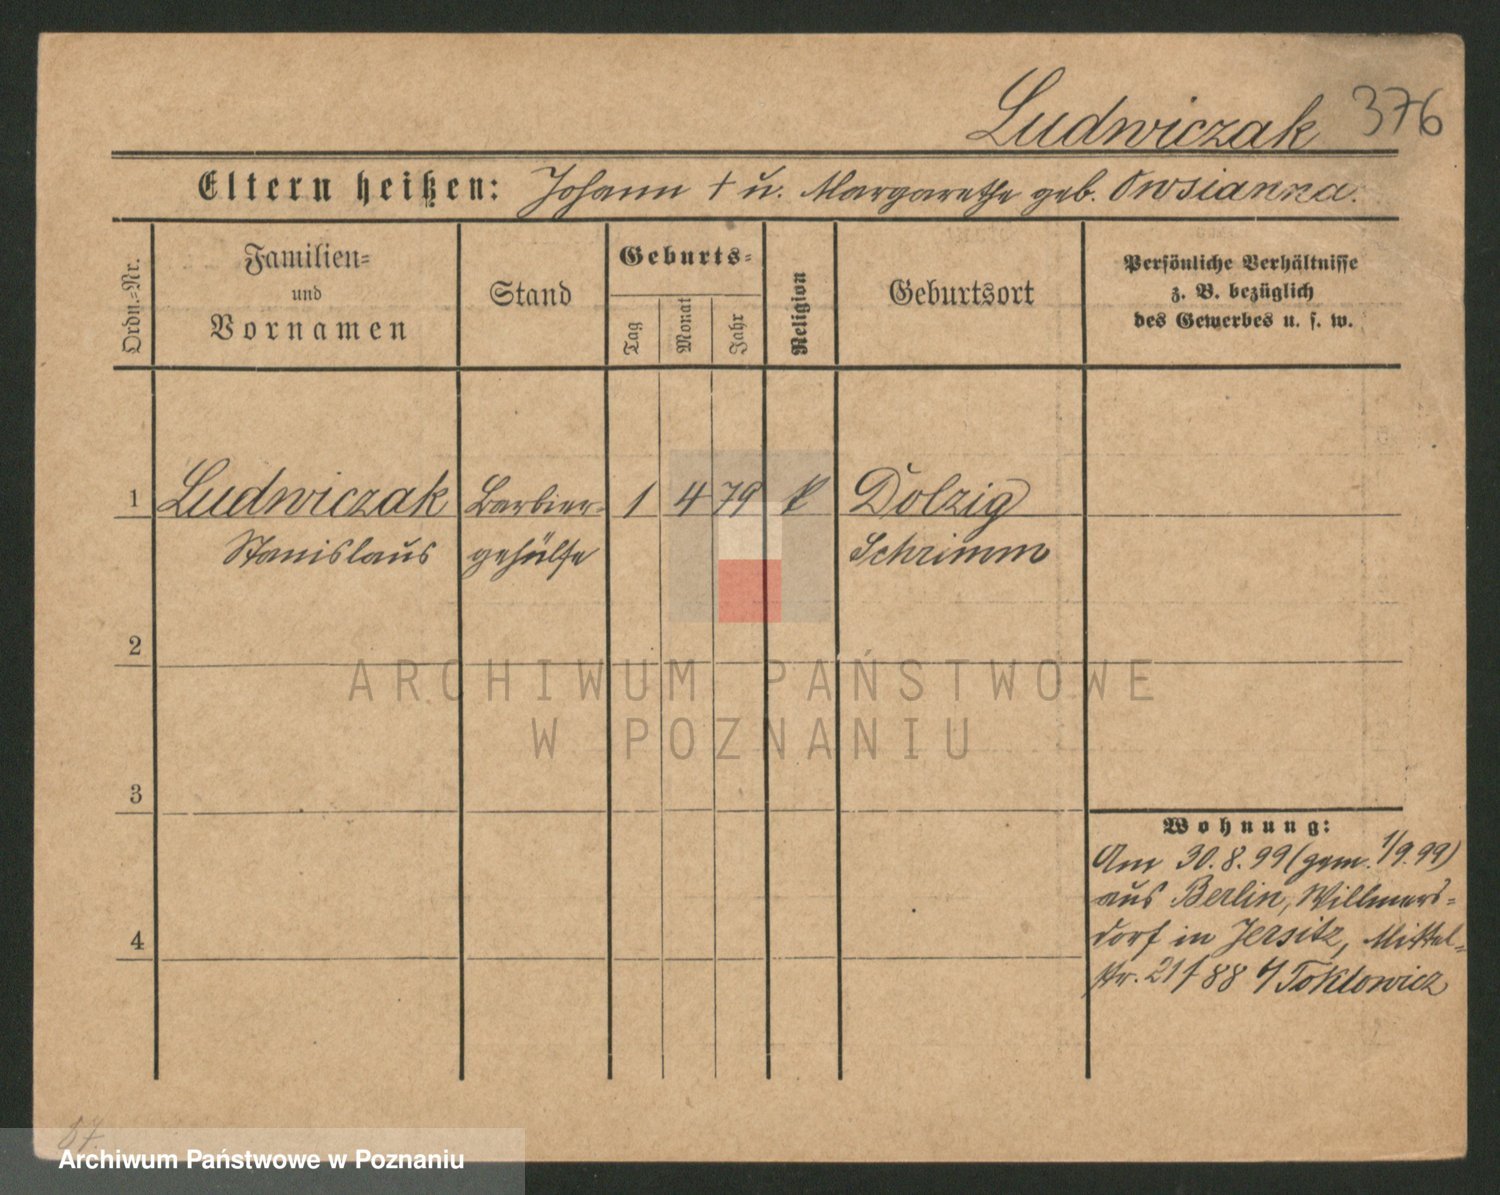 Ludwiczak 376
Eltern heißen: Johann † u. Margarethe geb. Owsianna.
Ordn.-Nr.
Familien-
und
Vornamen
Stand
Geburts-
Tag
Monat
Jahr
Religion
Geburtsort
Persönliche Verhältnisse
z. B. bezüglich
des Gewerbes u. s. w.
1 Ludwiczak Barbier- 1 4 79 k Dolzig
Stanislaus gehülfe Schrimm
2
3
4
Wohnung:
Am 30.8.99 (gem. 1/9.99)
aus Berlin, Willmers-
dorf in Jersitz, Mittel-
str. 21 f 88 b/ Toklowicz
ARCHIWUM PAŃSTWOWE
W POZNANIU
Archiwum Państwowe w Poznaniu